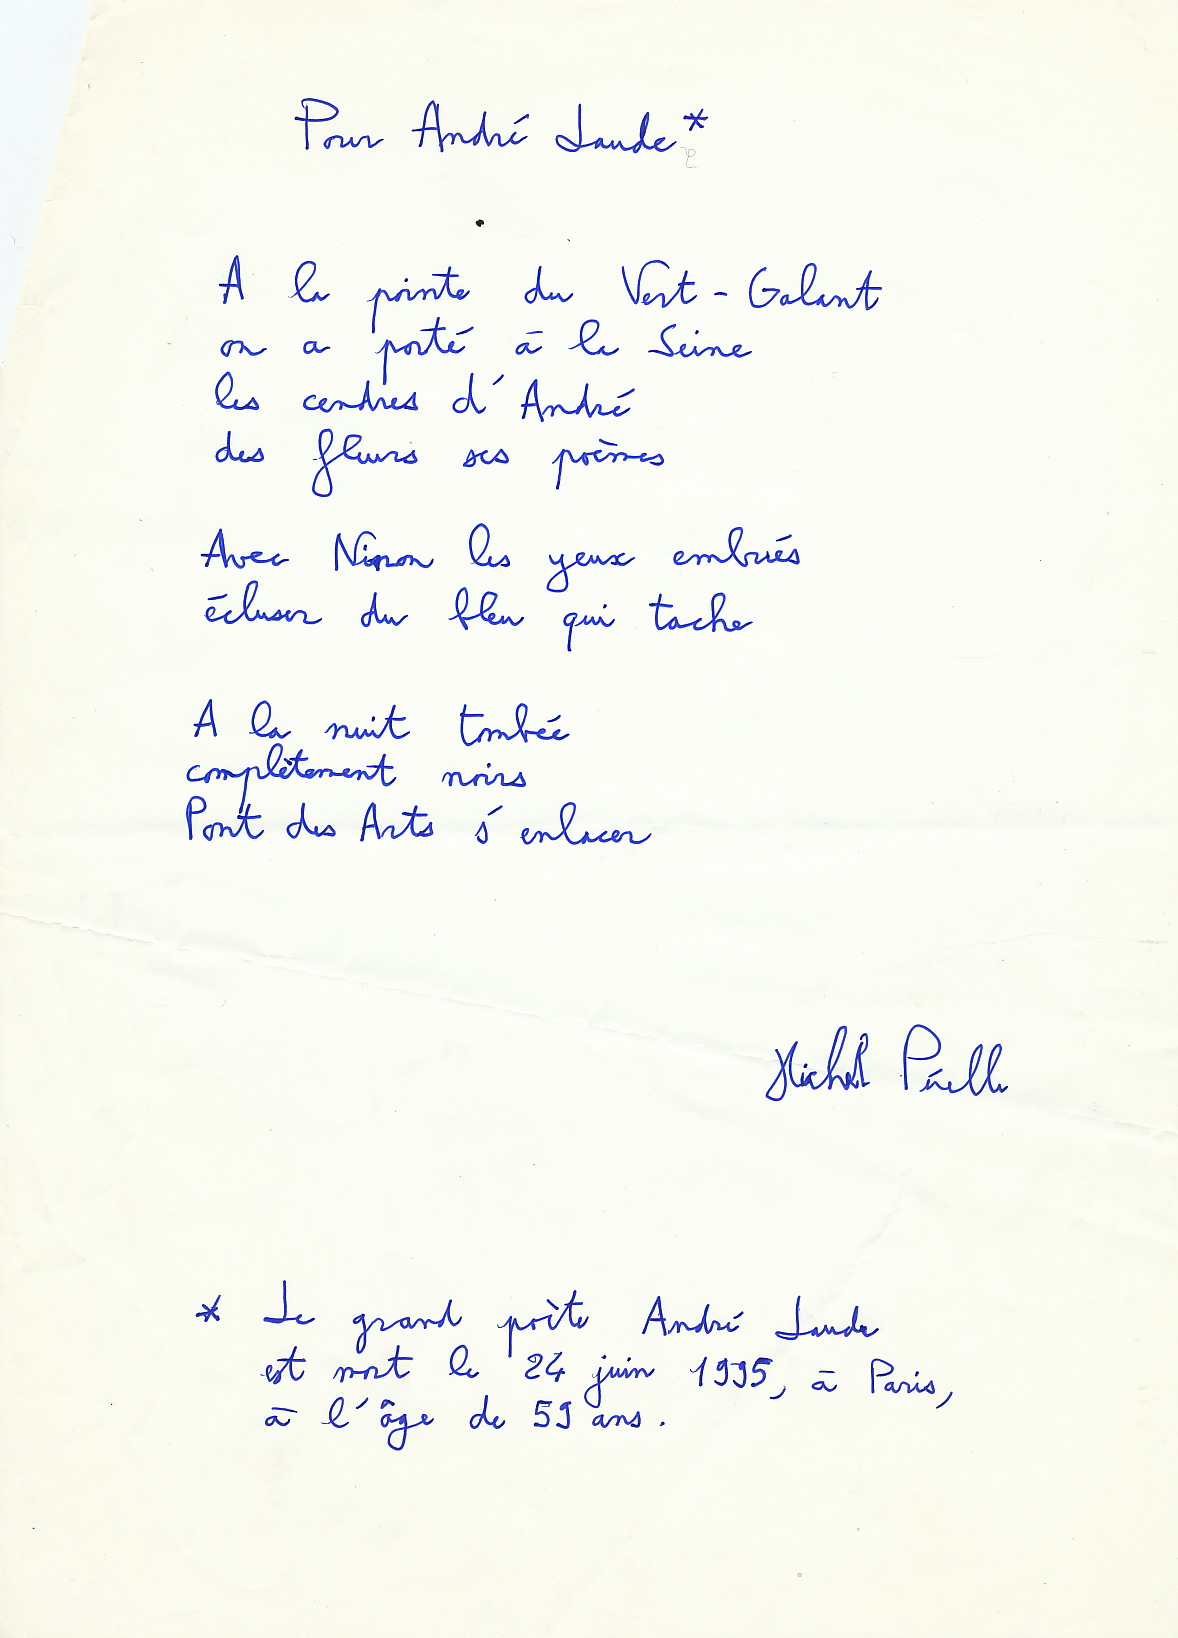 Pour André Laude*
A la pointe du Vert-Galant
on a porté à la Seine
les cendres d'André
des fleurs ses poèmes
Avec Ninon les yeux embués
écluser du bleu qui tache
A la nuit tombée
complètement noirs
Pont des Arts s'enlacer
Michel
* Le grand poète André Laude
est mort le 24 juin 1995, à Paris,
à l'âge de 59 ans.